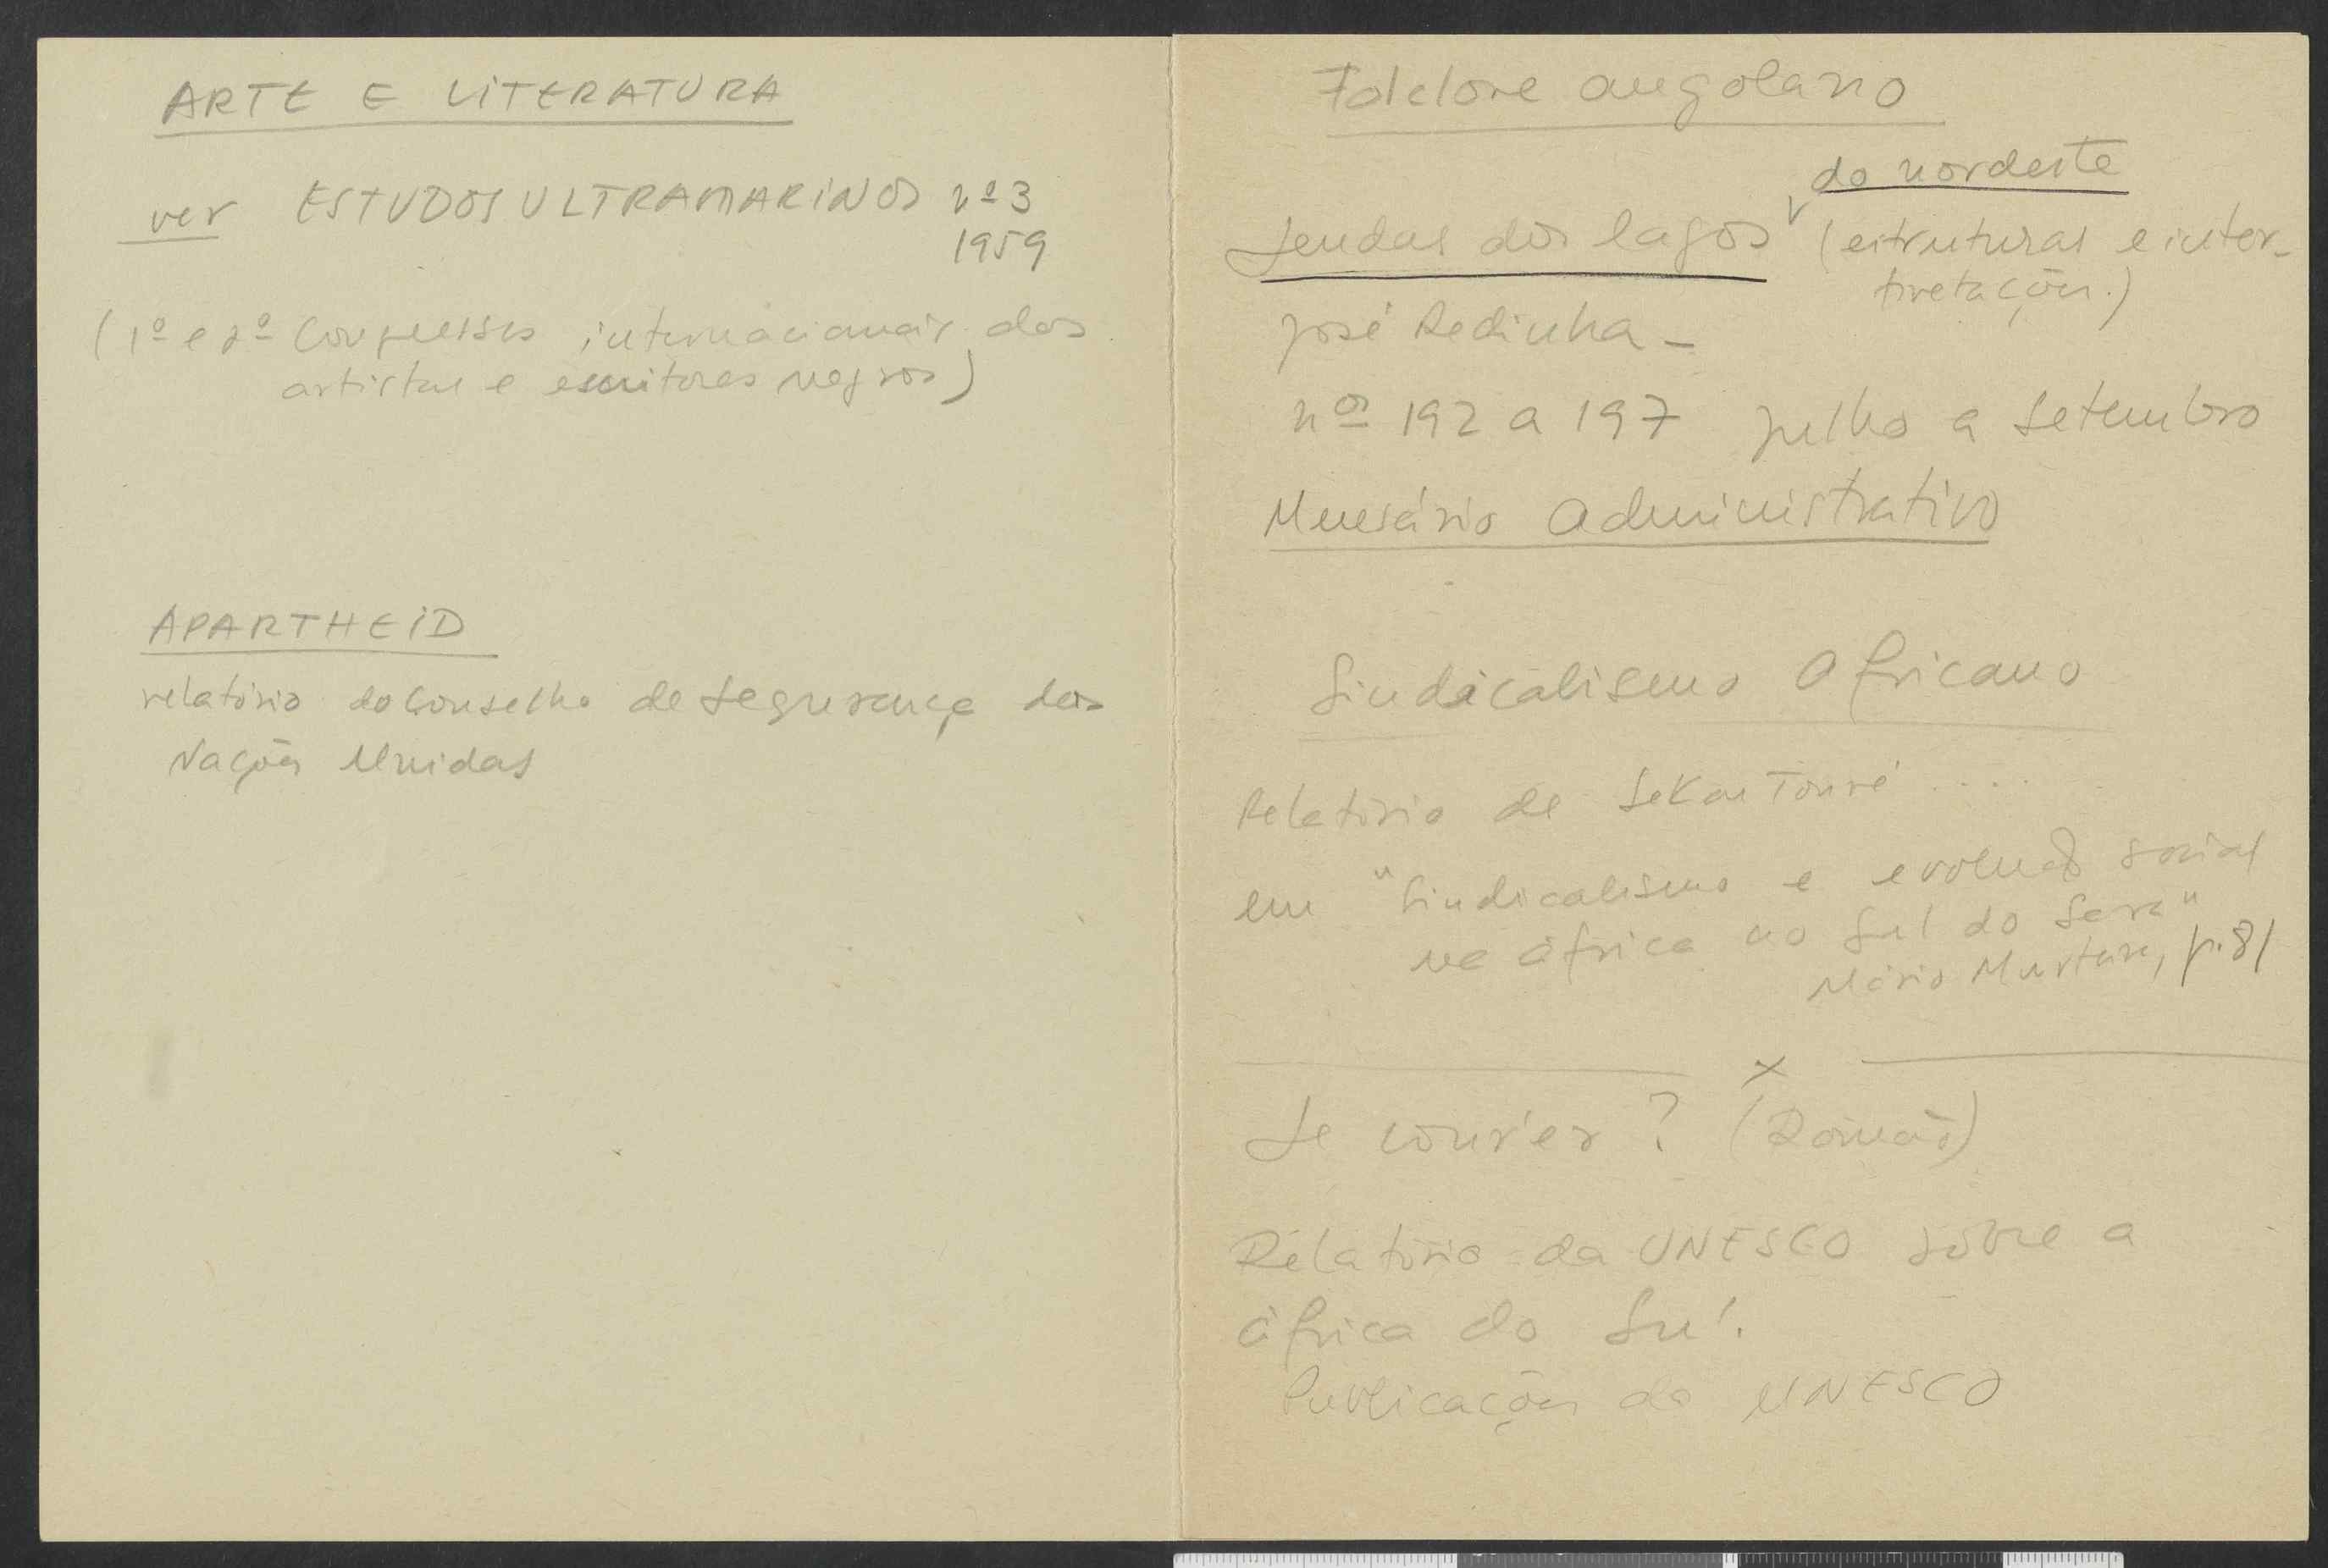 ARTE E LITERATURA
ver ESTUDOS ULTRAMARINOS nº 3
1959
(1º e 2º Congressos internacionais dos
artistas e escritores negros)
APARTHEID
relatório do Conselho de Segurança das
Nações Unidas
Folclore angolano
do nordeste
Lendas dos lagos (estruturas e inter-
pretações.)
José Redinha -
nos 192 a 197 julho a Setembro
Mensário Administrativo
Sindicalismo Africano
Relatório de Sekou Touré ....
em "Sindicalismo e evolução social
na África ao Sul do Sara"
Mário Murteira, p. 81
x
Se houver? (Romão)
Relatório da UNESCO sôbre a
África do Sul.
Publicações da UNESCO